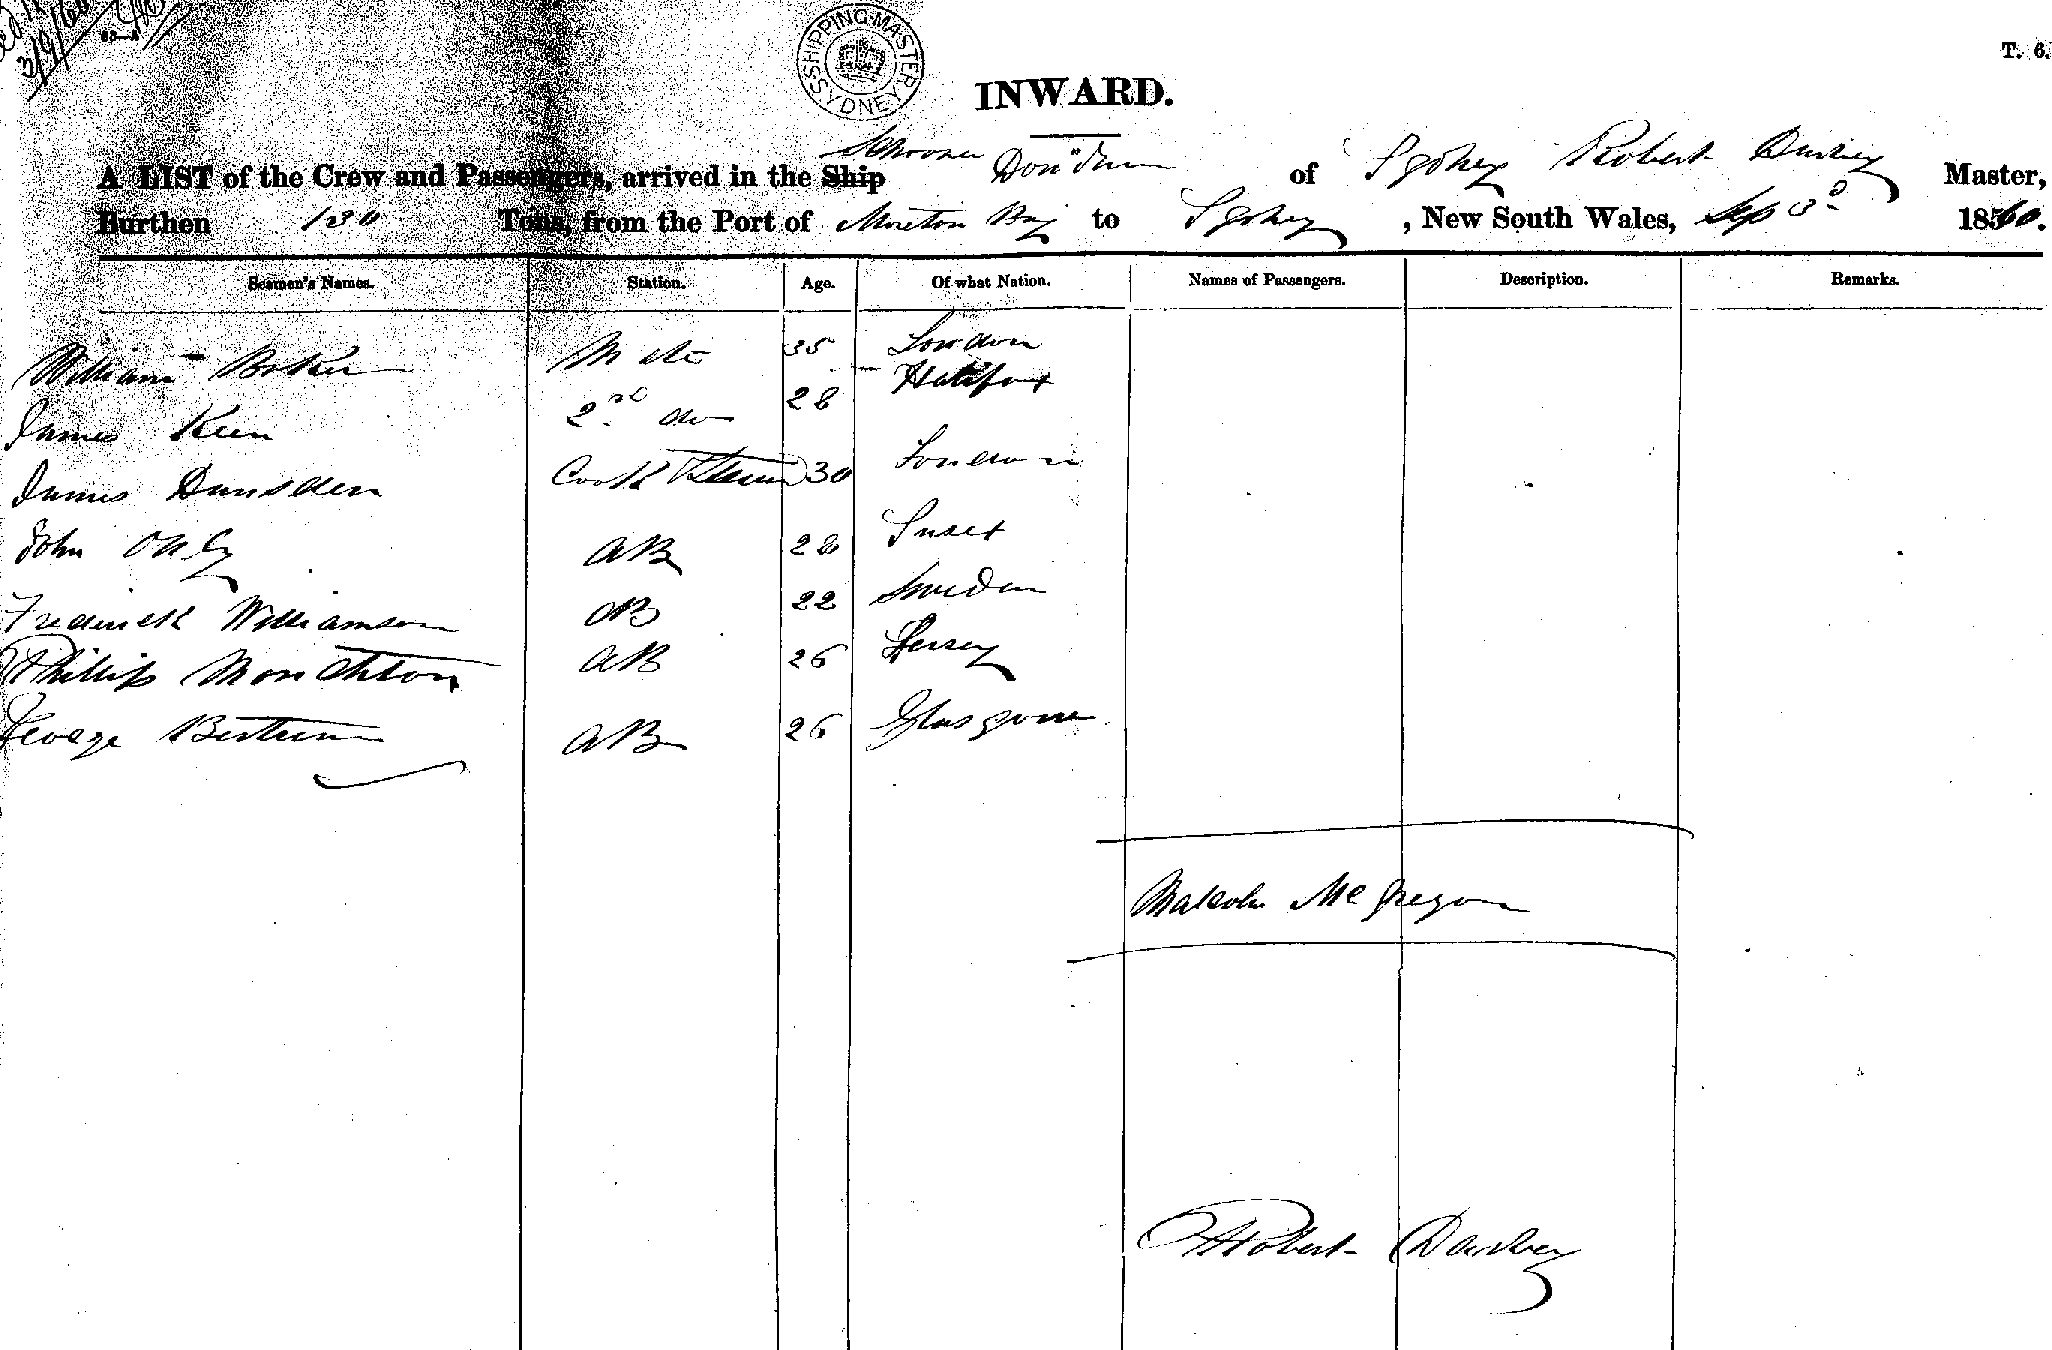 3/9/60
SHIPPING MASTER SYDNEY
T. 6.
INWARD.
A LIST of the Crew and Passengers, arrived in the Ship Schooner Don Juan of Sydney Robert Darbey Master,
Burthen 130 Tons, from the Port of Moreton Bay to Sydney, New South Wales, Sep 3d 1860.
Seamen's Names. Station. Age. Of what Nation. Names of Passengers. Description. Remarks.
William Baker Mate 35 London
James Keen 2nd do 28 Halifax
James Dunsden Cook Steward 30 London
John AB 28
Frederick Williamson AB 22 Sweden
Phillip Monchton AB 26 Jersey
George Bertram AB 26 Glasgow
Malcolm McGregor
Robert Darbey